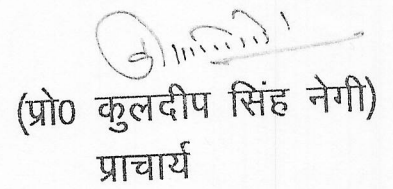 (प्रो0 कुलदीप सिंह नेगी)
प्राचार्य